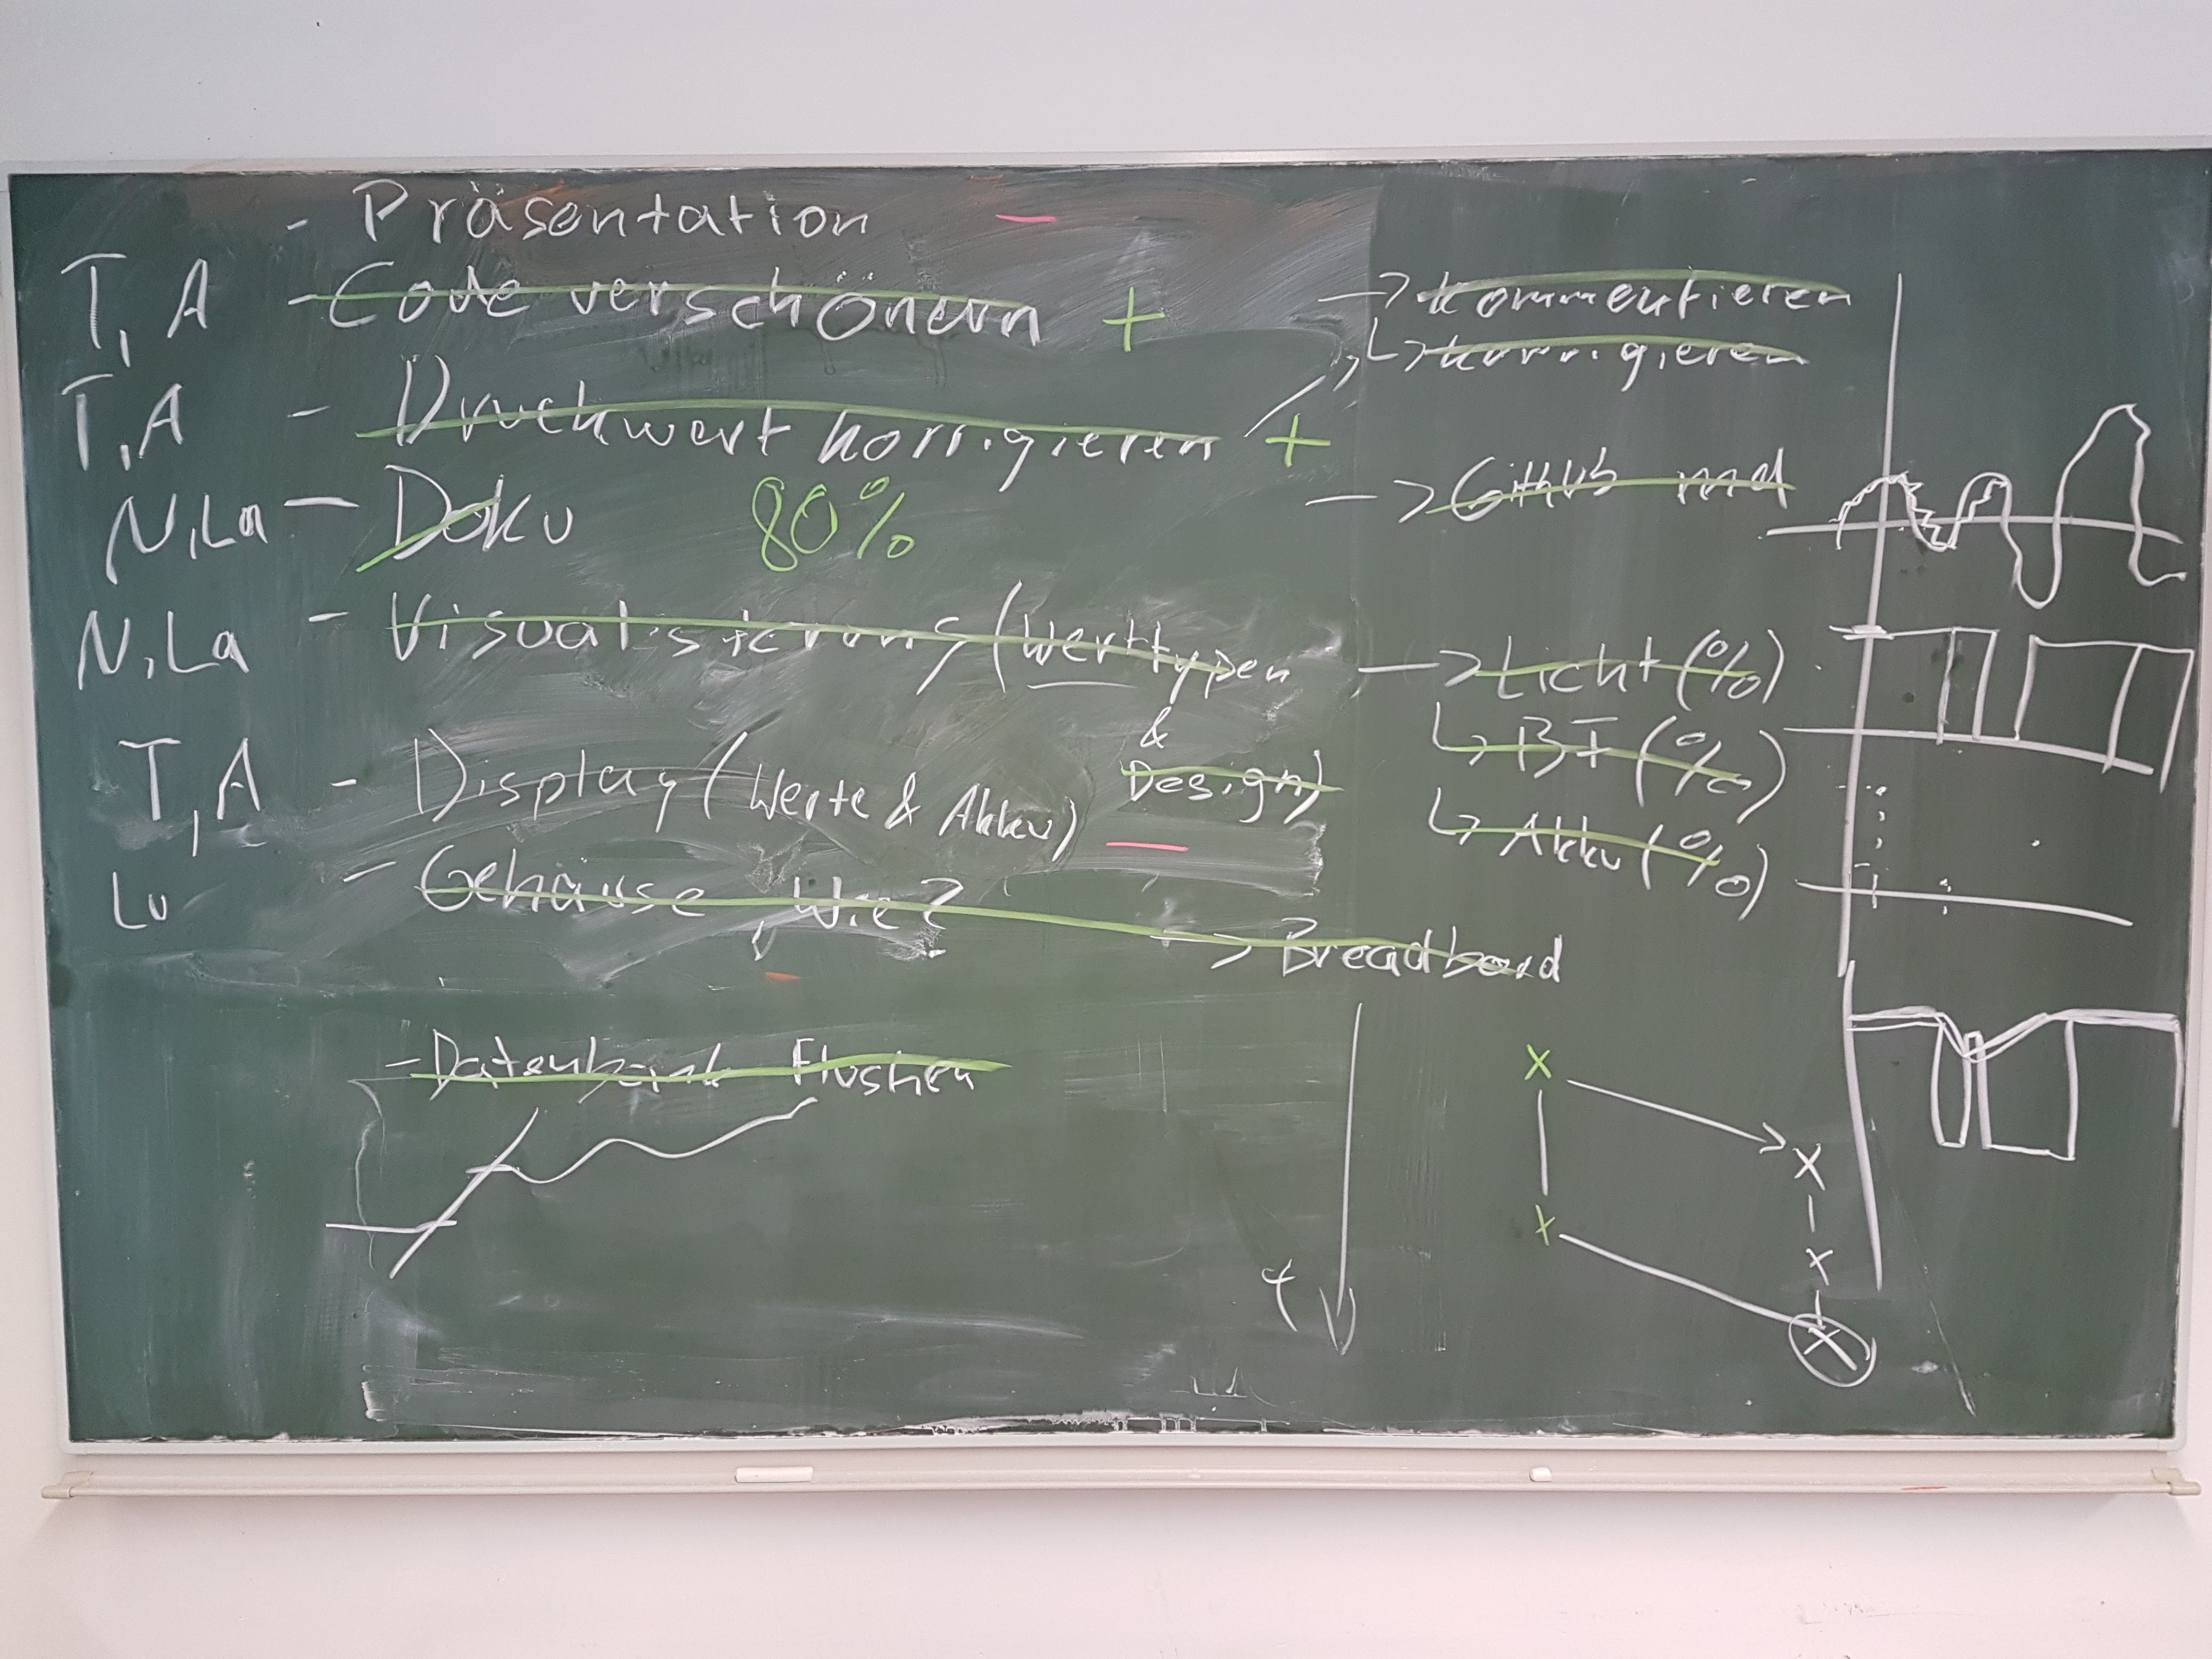 - Präsentation -
T, A - Code verschönern + -> kommentieren
↳ korrigieren
T, A - Druckwert korrigieren +
N, La - Doku 80% -> Github md
N, La - Visualisierung (Werttypen -> Licht (%)
& Design) ↳ BF (%)
T, A - Display (Werte & Akku) - ↳ Akku (%)
Lu - Gehäuse, Wie? -> Breadboard
- Datenbank Flushen
t
x
x
x
x
x